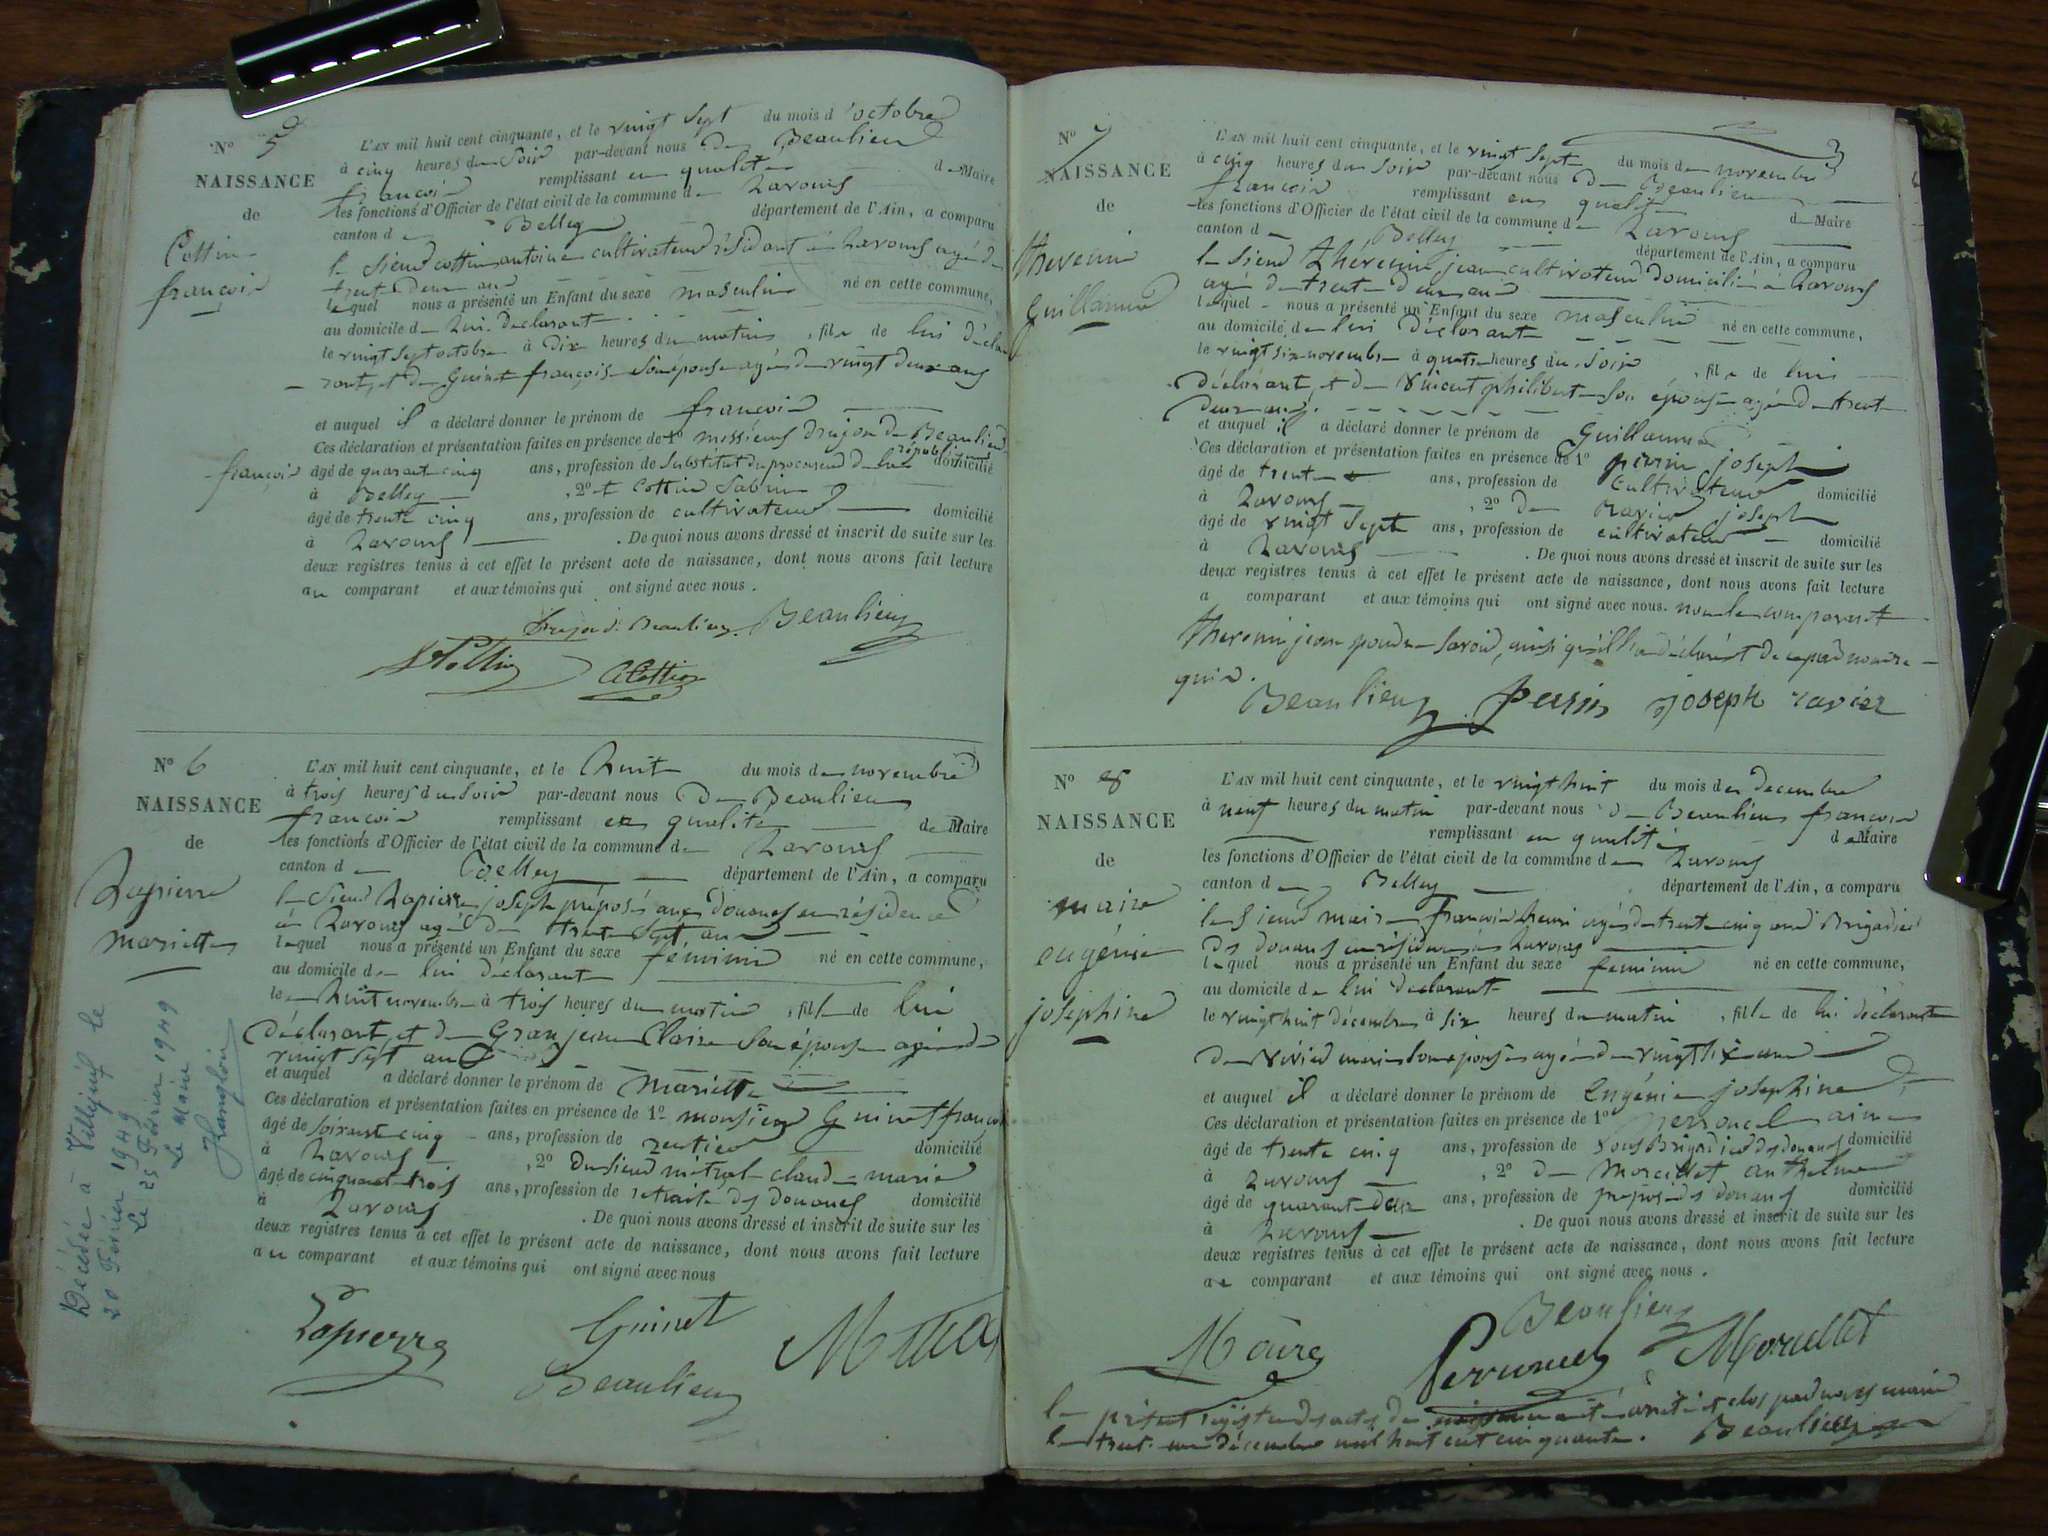 N° 5
NAISSANCE
de
Cottin
françois
L'AN mil huit cent cinquante, et le vingt Sept du mois d'octobre
à cinq heures du Soir par-devant nous De Beaulieu
françois remplissant en qualité de Maire
les fonctions d'Officier de l'état civil de la commune de Lavours
canton de Belley département de l'Ain, a comparu
le Sieur cottin antoine cultivateur résidant à Lavours agé de
trente deux ans
lequel nous a présenté un Enfant du sexe masculin né en cette commune,
au domicile de lui déclarant
le vingt Sept octobre à Dix heures du matin, fils de lui décla
rant, et de Guinet françoise Son épouse agée de vingt deux ans
et auquel il a déclaré donner le prénom de françois
Ces déclaration et présentation faites en présence de 1° messieurs Drujon De Beaulieu
françois âgé de quarante cinq ans, profession de Substitut du procureur de la république domicilié
à Belley, 2° et Cottin Sabin
âgé de trente cinq ans, profession de cultivateur domicilié
à Lavours. De quoi nous avons dressé et inscrit de suite sur les
deux registres tenus à cet effet le présent acte de naissance, dont nous avons fait lecture
au comparant et aux témoins qui ont signé avec nous.
Drujon de Beaulieu Beaulieu
S Cottin A Cottin
N° 6
NAISSANCE
de
Lapierre
Mariette
L'AN mil huit cent cinquante, et le huit du mois de novembre
à trois heures du Soir par-devant nous De Beaulieu
françois remplissant en qualité de Maire
les fonctions d'Officier de l'état civil de la commune de Lavours
canton de Belley département de l'Ain, a comparu
le Sieur Lapierre joseph préposé aux douanes en résidence
à Lavours agé de trente Sept ans
lequel nous a présenté un Enfant du sexe féminin né en cette commune,
au domicile de lui déclarant
le huit novembre à trois heures du matin, fille de lui
déclarant, et de Granjean Claire Son épouse agée de
vingt Sept ans
et auquel a déclaré donner le prénom de Mariette
Ces déclaration et présentation faites en présence de 1° monsieur Guinet françois
âgé de soixante cinq ans, profession de rentier domicilié
à Lavours, 2° du sieur mitral claude marie
âgé de cinquante trois ans, profession de retraité des Douanes domicilié
à Lavours. De quoi nous avons dressé et inscrit de suite sur les
deux registres tenus à cet effet le présent acte de naissance, dont nous avons fait lecture
au comparant et aux témoins qui ont signé avec nous
Lapierre Guinet
Beaulieu
Décédée à Villejuif le
20 Février 1949
Le 25 Février 1949
Le Maire
N° 7
NAISSANCE
de
thevenin
Guillaume
3
L'AN mil huit cent cinquante, et le vingt Sept du mois de novembre
à cinq heures du Soir par-devant nous De Beaulieu
françois remplissant en qualité de Maire
les fonctions d'Officier de l'état civil de la commune de Lavours
canton de Belley département de l'Ain, a comparu
le Sieur thévenin jean cultivateur domicilié à Lavours
agé de trente deux ans
lequel nous a présenté un Enfant du sexe masculin né en cette commune,
au domicile de lui déclarant
le vingt six novembre à quatre heures du Soir, fils de lui
déclarant, et de Vincent philiberte Son épouse agée de trente
deux ans.
et auquel il a déclaré donner le prénom de Guillaume
Ces déclaration et présentation faites en présence de 1° perrin joseph
âgé de trente ans, profession de cultivateur domicilié
à Lavours, 2° de Ravier joseph
âgé de vingt Sept ans, profession de cultivateur domicilié
à Lavours. De quoi nous avons dressé et inscrit de suite sur les
deux registres tenus à cet effet le présent acte de naissance, dont nous avons fait lecture
a comparant et aux témoins qui ont signé avec nous. non le comparant
thevenin jean pour ne Savoir, ainsi qu'il l'a déclaré de ce par nous re
quis.
Beaulieu perrin joseph ravier
N° 8
NAISSANCE
de
maire
eugénie
joséphine
L'AN mil huit cent cinquante, et le vingt huit du mois de decembre
à neuf heures du matin par-devant nous De Beaulieu françois
remplissant en qualité de Maire
les fonctions d'Officier de l'état civil de la commune de Lavours
canton de Belley département de l'Ain, a comparu
le Sieur maire françois henri agé de trente cinq ans Brigadier
des douanes en résidence à Lavours
lequel nous a présenté un Enfant du sexe feminin né en cette commune,
au domicile de lui déclarant
le vingt huit décembre à six heures du matin, fille de lui déclarant et
de Vivier marie Son épouse agée de vingt six ans
et auquel il a déclaré donner le prénom de Eugénie josephine
Ces déclaration et présentation faites en présence de 1°
âgé de trente cinq ans, profession de Sous Brigadier des douanes domicilié
à Lavours, 2° de Morcellet anthelme
âgé de quarante deux ans, profession de préposé des douanes domicilié
à Lavours. De quoi nous avons dressé et inscrit de suite sur les
deux registres tenus à cet effet le présent acte de naissance, dont nous avons fait lecture
au comparant et aux témoins qui ont signé avec nous.
Beaulieu
Maire Morcellet
le présent registre des actes de naissance a été arrêté et clos par nous maire
le trente un décembre mil huit cent cinquante. Beaulieu